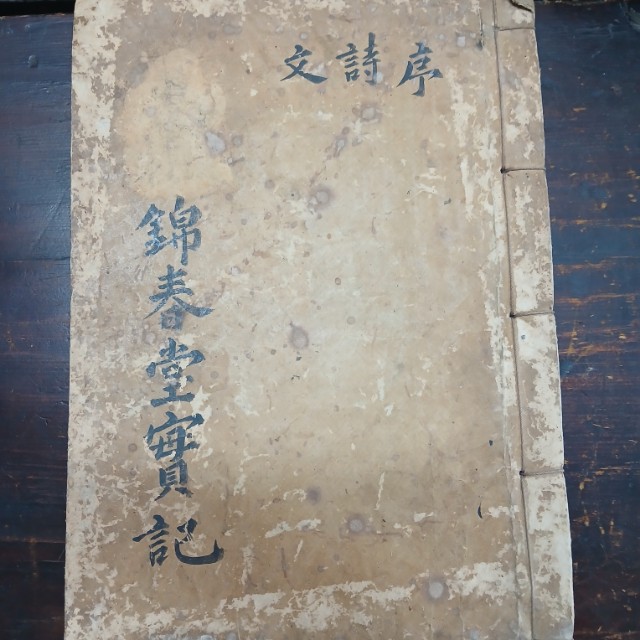 序詩文
錦春堂實記